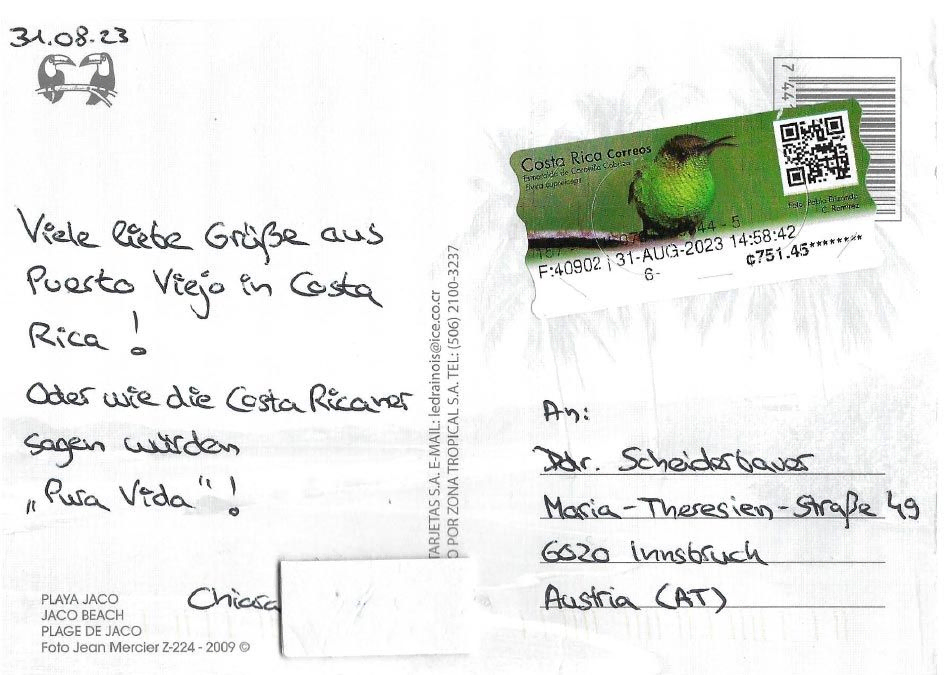 31.08.23
Viele liebe Grüße aus
Puerto Viejo in Costa
Rica !
Oder wie die Costa Ricaner
sagen würden
„Pura Vida“!
Chiara
PLAYA JACO
JACO BEACH
PLAGE DE JACO
Foto Jean Mercier Z-224 - 2009 ©
TARJETAS S.A. E-MAIL: ledrainois@ice.co.cr
O POR ZONA TROPICAL S.A. TEL: (506) 2100-3237
Costa Rica Correos
Esmeralda de Coronita Cobriza
Elvira cupreiceps
Foto: Pablo Elizondo
C. Ramírez
44 - 5
F:40902 | 31-AUG-2023 14:58:42
6-
¢751.45********
An:
DDr. Scheiderbauer
Maria-Theresien-Straße 49
6020 Innsbruck
Austria (AT)